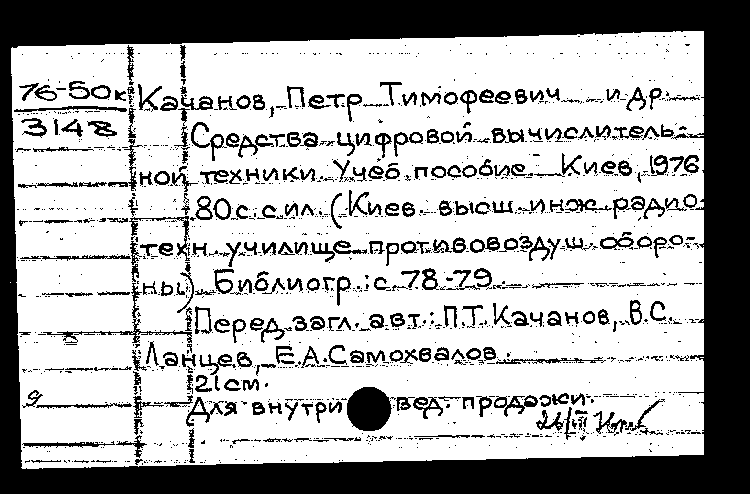 76-50к
3148
Качанов, Петр Тимофеевич и др.
Средства цифровой вычислитель-
ной техники. Учеб. пособие. Киев, 1976.
80 с. с ил. (Киев. высш. инж. радио-
техн. училище противовоздуш. оборо-
ны). Библиогр.: с. 78-79.
Перед загл. авт.: П.Т.Качанов, В.С.
Ланцев, Е.А.Самохвалов.
21 см.
Для внутри вед. продажи.
26/III